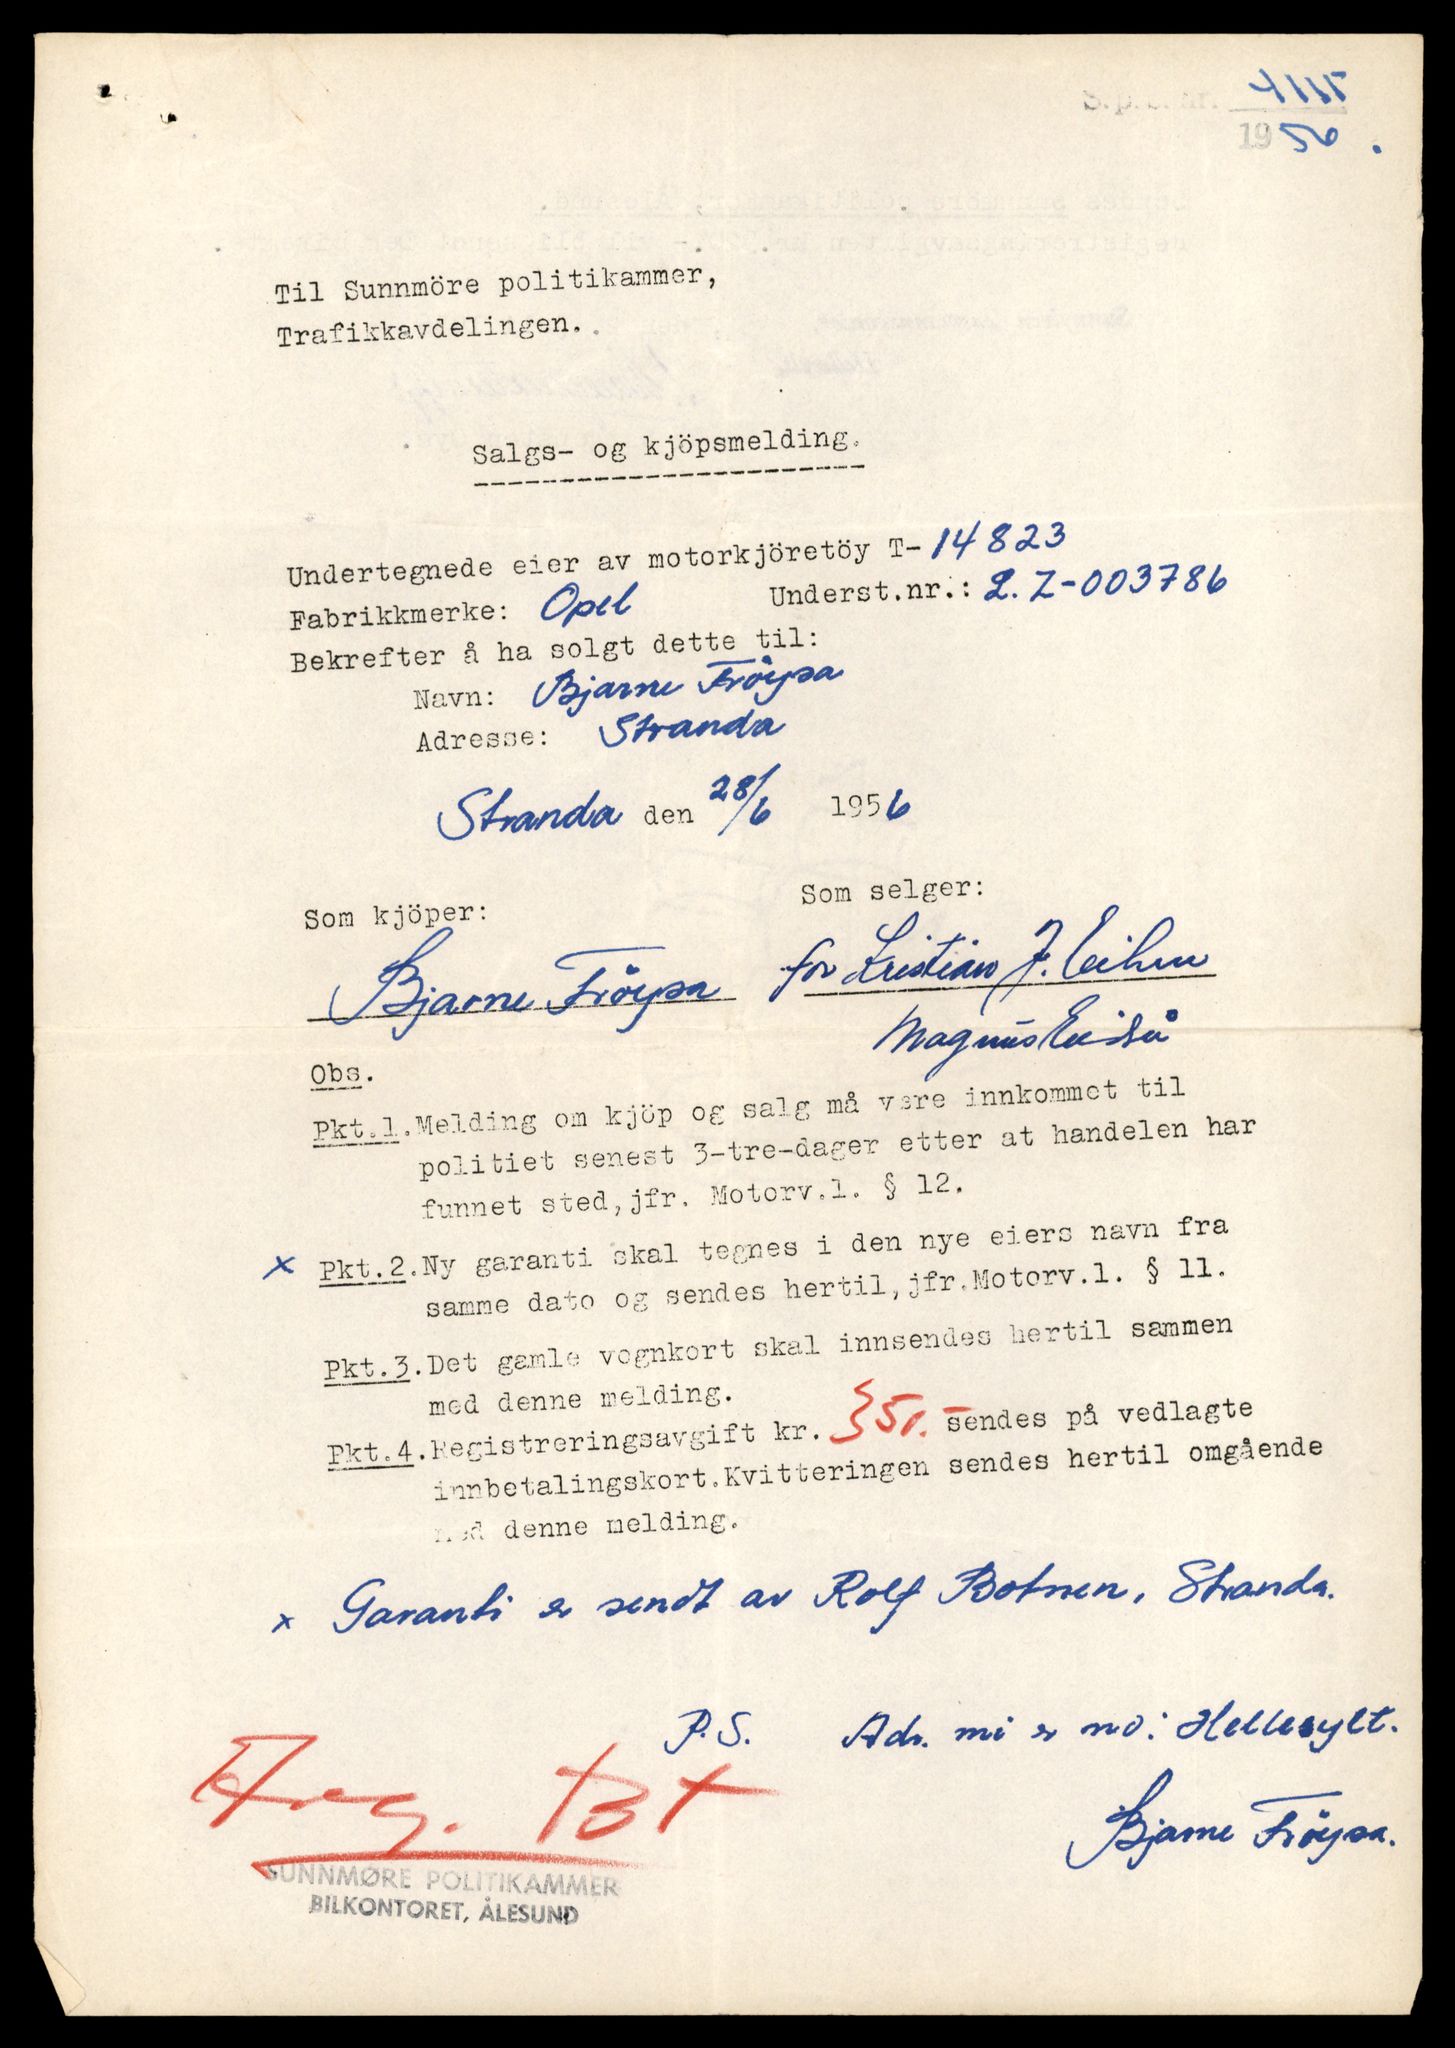 S.p.k. nr. 4115
1956.
Til Sunnmöre politikammer,
Trafikkavdelingen..
Salgs- og kjöpsmelding.
Undertegnede eier av motorkjöretöy T- 14823
Fabrikkmerke: Opel Underst.nr.: 2.Z-003786
Bekrefter å ha solgt dette til:
Navn: Bjarne Fröysa
Adresse: Stranda
Stranda den 28/6 1956
Som kjöper: Som selger:
Bjarne Fröysa for Kristian J.
Magnus
Obs.
Pkt.1. Melding om kjöp og salg må være innkommet til
politiet senest 3-tre-dager etter at handelen har
funnet sted, jfr. Motorv.l. § 12.
x Pkt.2. Ny garanti skal tegnes i den nye eiers navn fra
samme dato og sendes hertil, jfr. Motorv.l. § 11.
Pkt.3. Det gamle vognkort skal innsendes hertil sammen
med denne melding.
Pkt.4. Registreringsavgift kr. 51.- sendes på vedlagte
innbetalingskort. Kvitteringen sendes hertil omgående
med denne melding.
x Garanti er sendt av Rolf Botnen, Stranda.
P.S. Adr. mi er no: Hellesylt.
Bjarne Fröysa.
SUNNMØRE POLITIKAMMER
BILKONTORET, ÅLESUND